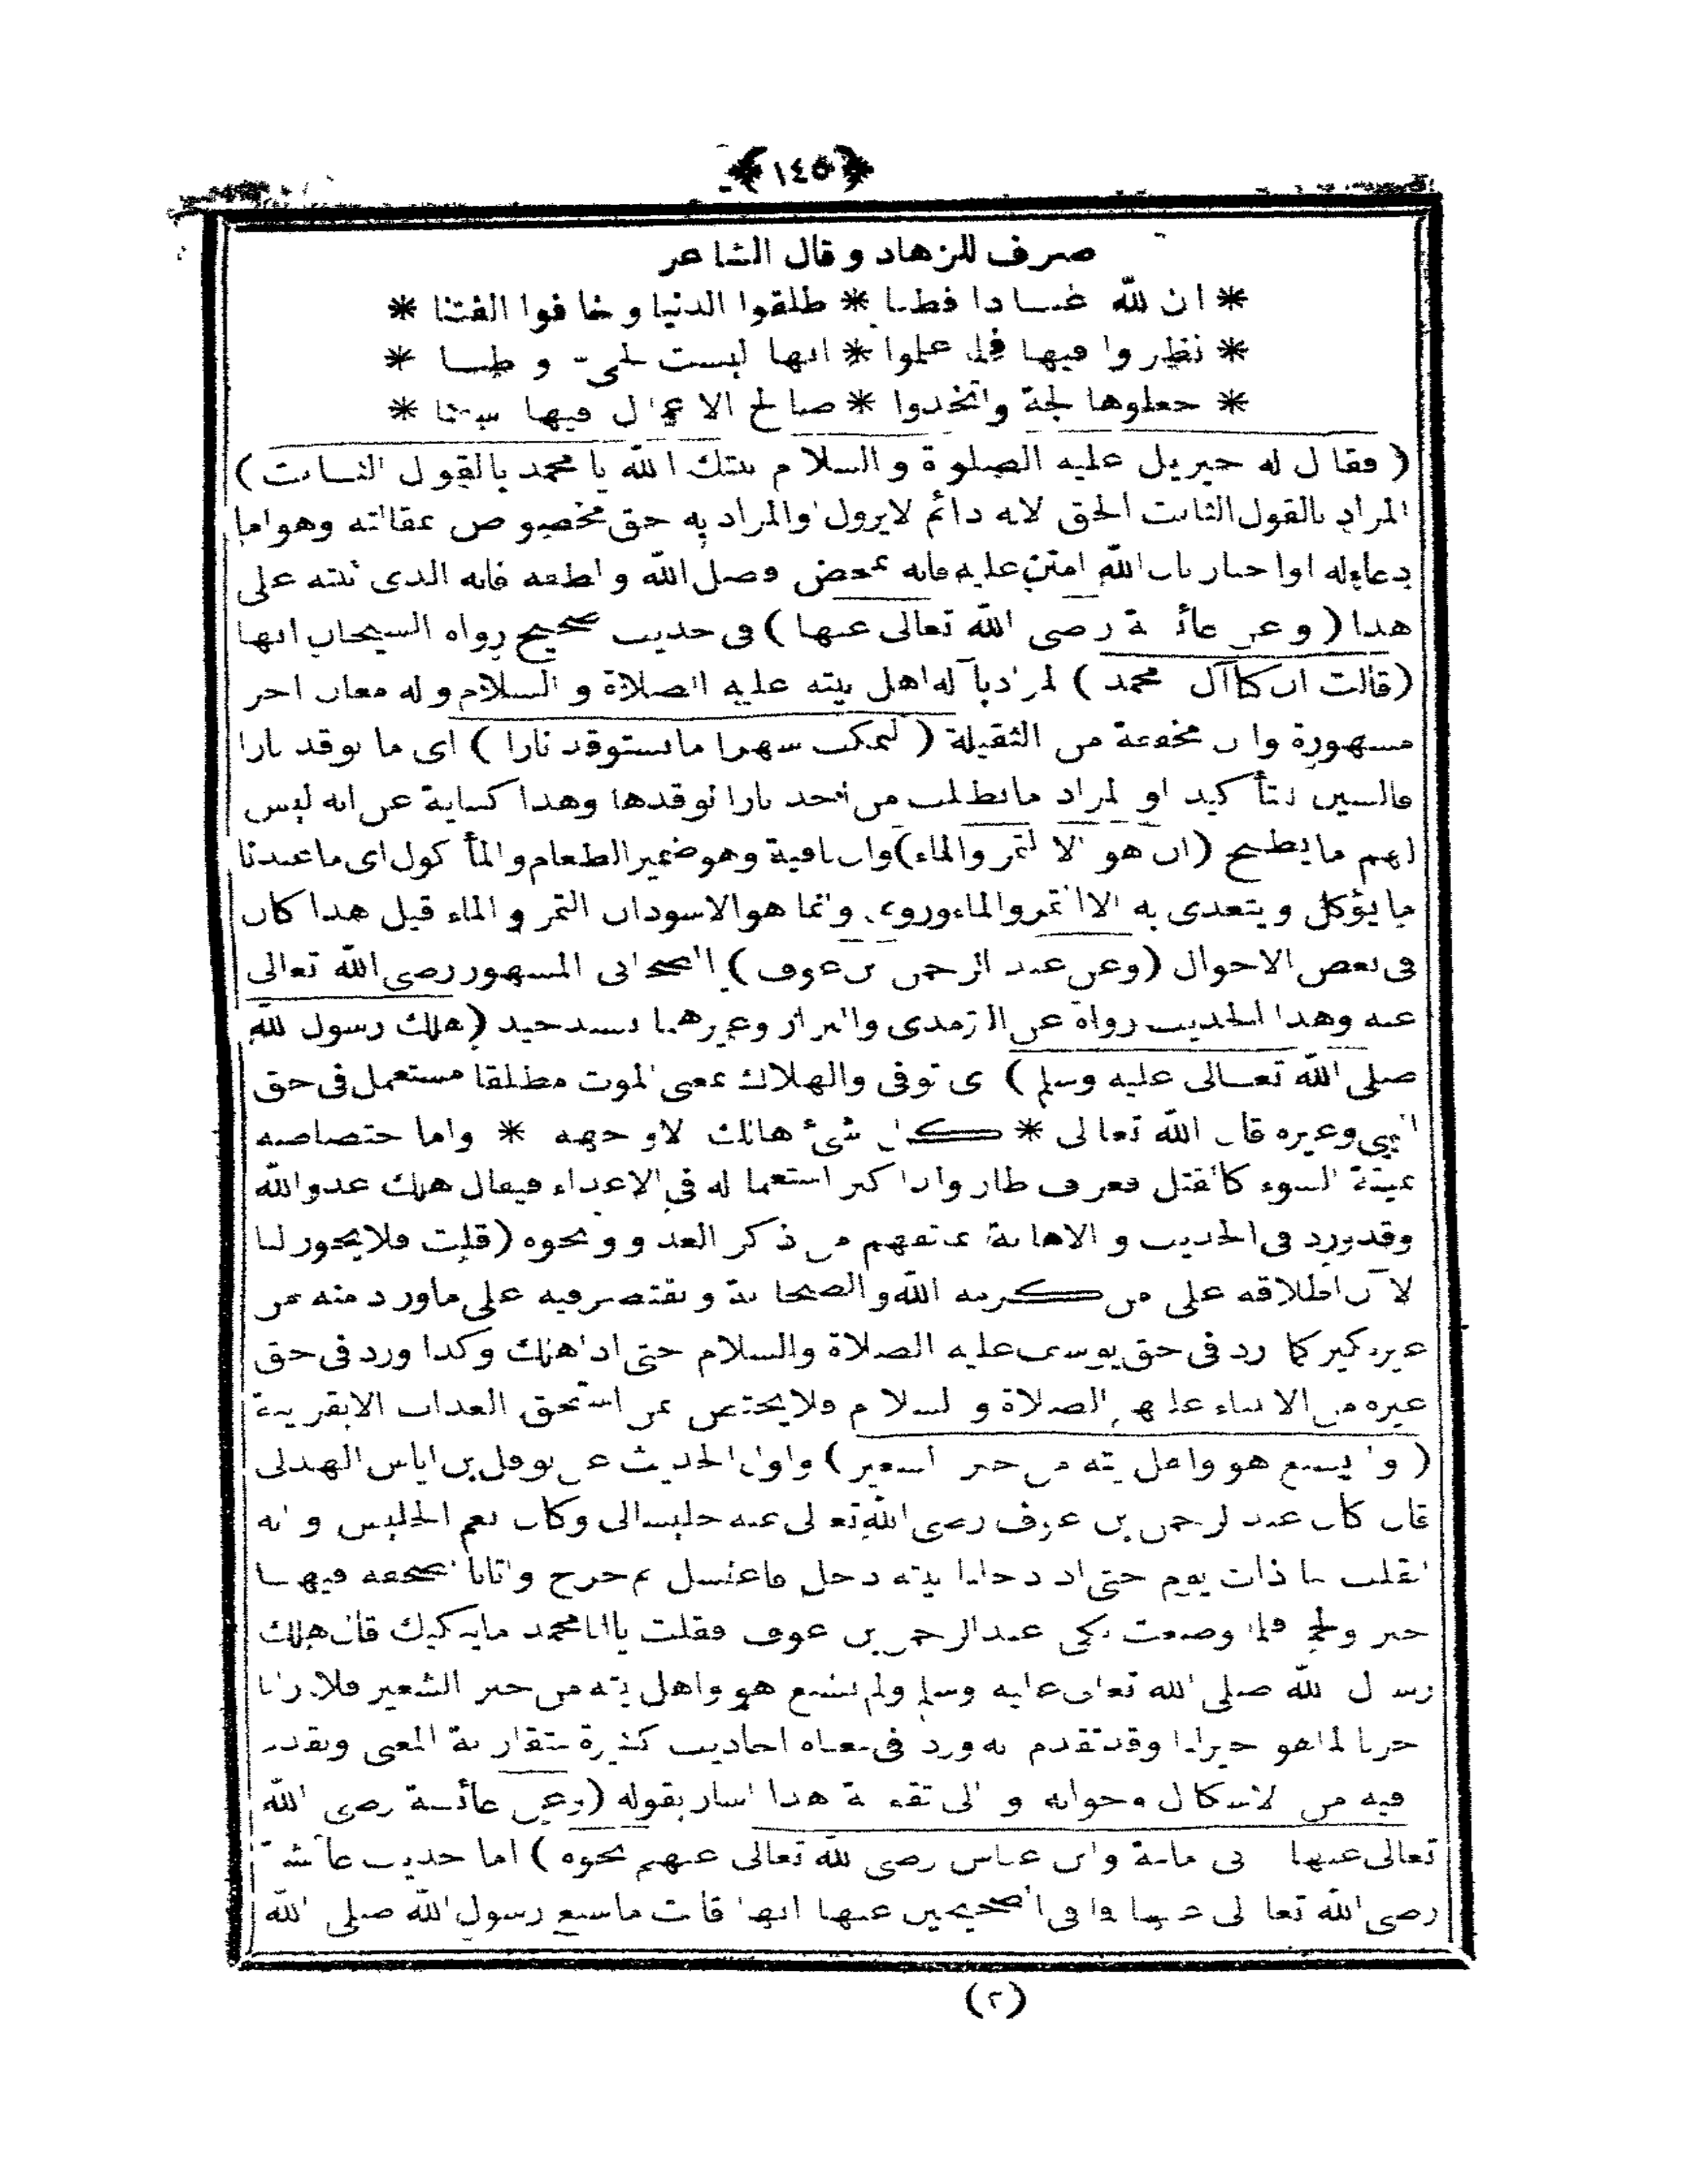 ﴿١٤٥﴾
صرف للزهاد وقال الشاعر
* ان لله عبادا فطنا * طلقوا الدنيا وخافوا الفتنا *
* نظروا فيها فلما علموا * انها ليست لحى وطنا *
* جعلوها لجة واتخذوا * صالح الاعمال فيها سفنا *
( فقال له جبريل عليه الصلوة والسلام ثبتك الله يا محمد بالقول الثابت )
المراد بالقول الثابت الحق لانه دائم لا يزول والمراد به حق مخصوص بمقالته وهو اما
دعاء له او اخبار بان الله امتن عليه فانه بمحض فضل الله ولطفه فانه الذى ثبته على
هذا ( وعن عائشة رضى الله تعالى عنها ) فى حديث صحيح رواه الشيخان انها
( قالت ان كنا آل محمد ) المراد بآله اهل بيته عليه الصلاة والسلام وله معان اخر
مشهورة وان مخففة من الثقيلة ( لنمكث شهرا ما نستوقد نارا ) اى ما نوقد نارا
فالسين للتأكيد او المراد ما نطلب من احد نارا نوقدها وهذا كناية عن انه ليس
لهم ما يطبخ ( ان هو الا التمر والماء ) وان نافية وهو ضمير الطعام والمأكول اى ما عندنا
ما يؤكل ويتغدى به الا التمر والماء وروى وانما هو الاسودان التمر والماء قيل هذا كان
فى بعض الاحوال ( وعن عبد الرحمن بن عوف ) الصحابى المشهور رضى الله تعالى
عنه وهذا الحديث رواه عن الترمذى والبزار وغيرهما بسند جيد ( هلك رسول الله
صلى الله تعالى عليه وسلم ) اى توفى والهلاك بمعنى الموت مطلقا مستعمل فى حق
النبى وغيره قال الله تعالى * كل شئ هالك الا وجهه * واما اختصاصه
بميتة السوء كالقتل فعرف طار واذا كثر استعماله فى الاعداء فيقال هلك عدو الله
وقد يرد فى الحديث والاهانة مما تفهم من ذكر العدو ونحوه ( قلت فلا يجوز لنا
الآن اطلاقه على من كرمه الله والصحابة ونقتصر فيه على ما ورد منه عن
غيره كما ورد فى حق يوسف عليه الصلاة والسلام حتى اذا هلك وكذا ورد فى حق
غيره من الانبياء عليهم الصلاة والسلام فلا يختص بمن استحق العذاب الا بقرينة
( ولم يشبع هو واهل بيته من خبز الشعير ) واول الحديث عن نوفل بن اياس الهذلى
قال كان عبد الرحمن بن عوف رضى الله تعالى عنه جليسا لى وكان نعم الجليس وانه
انقلب بنا ذات يوم حتى اذا دخلنا بيته دخل فاغتسل ثم خرج واتانا بصحفة فيها
خبز ولحم فلما وضعت بكى عبد الرحمن بن عوف فقلت يا ابا محمد ما يبكيك قال هلك
رسول الله صلى الله تعالى عليه وسلم ولم يشبع هو واهل بيته من خبز الشعير فلا ارانا
اخرنا لما هو خير لنا وقد تقدم انه ورد فى معناه احاديث كثيرة متقاربة المعنى وتقدم
فيه من الاشكال وجوابه والى تقوية هذا اشار بقوله ( وعن عائشة رضى الله
تعالى عنها وابى امامة وابن عباس رضى الله تعالى عنهم نحوه ) اما حديث عائشة
رضى الله تعالى عنها فما فى الصحيحين عنها انها قالت ما شبع رسول الله صلى الله
(٢)